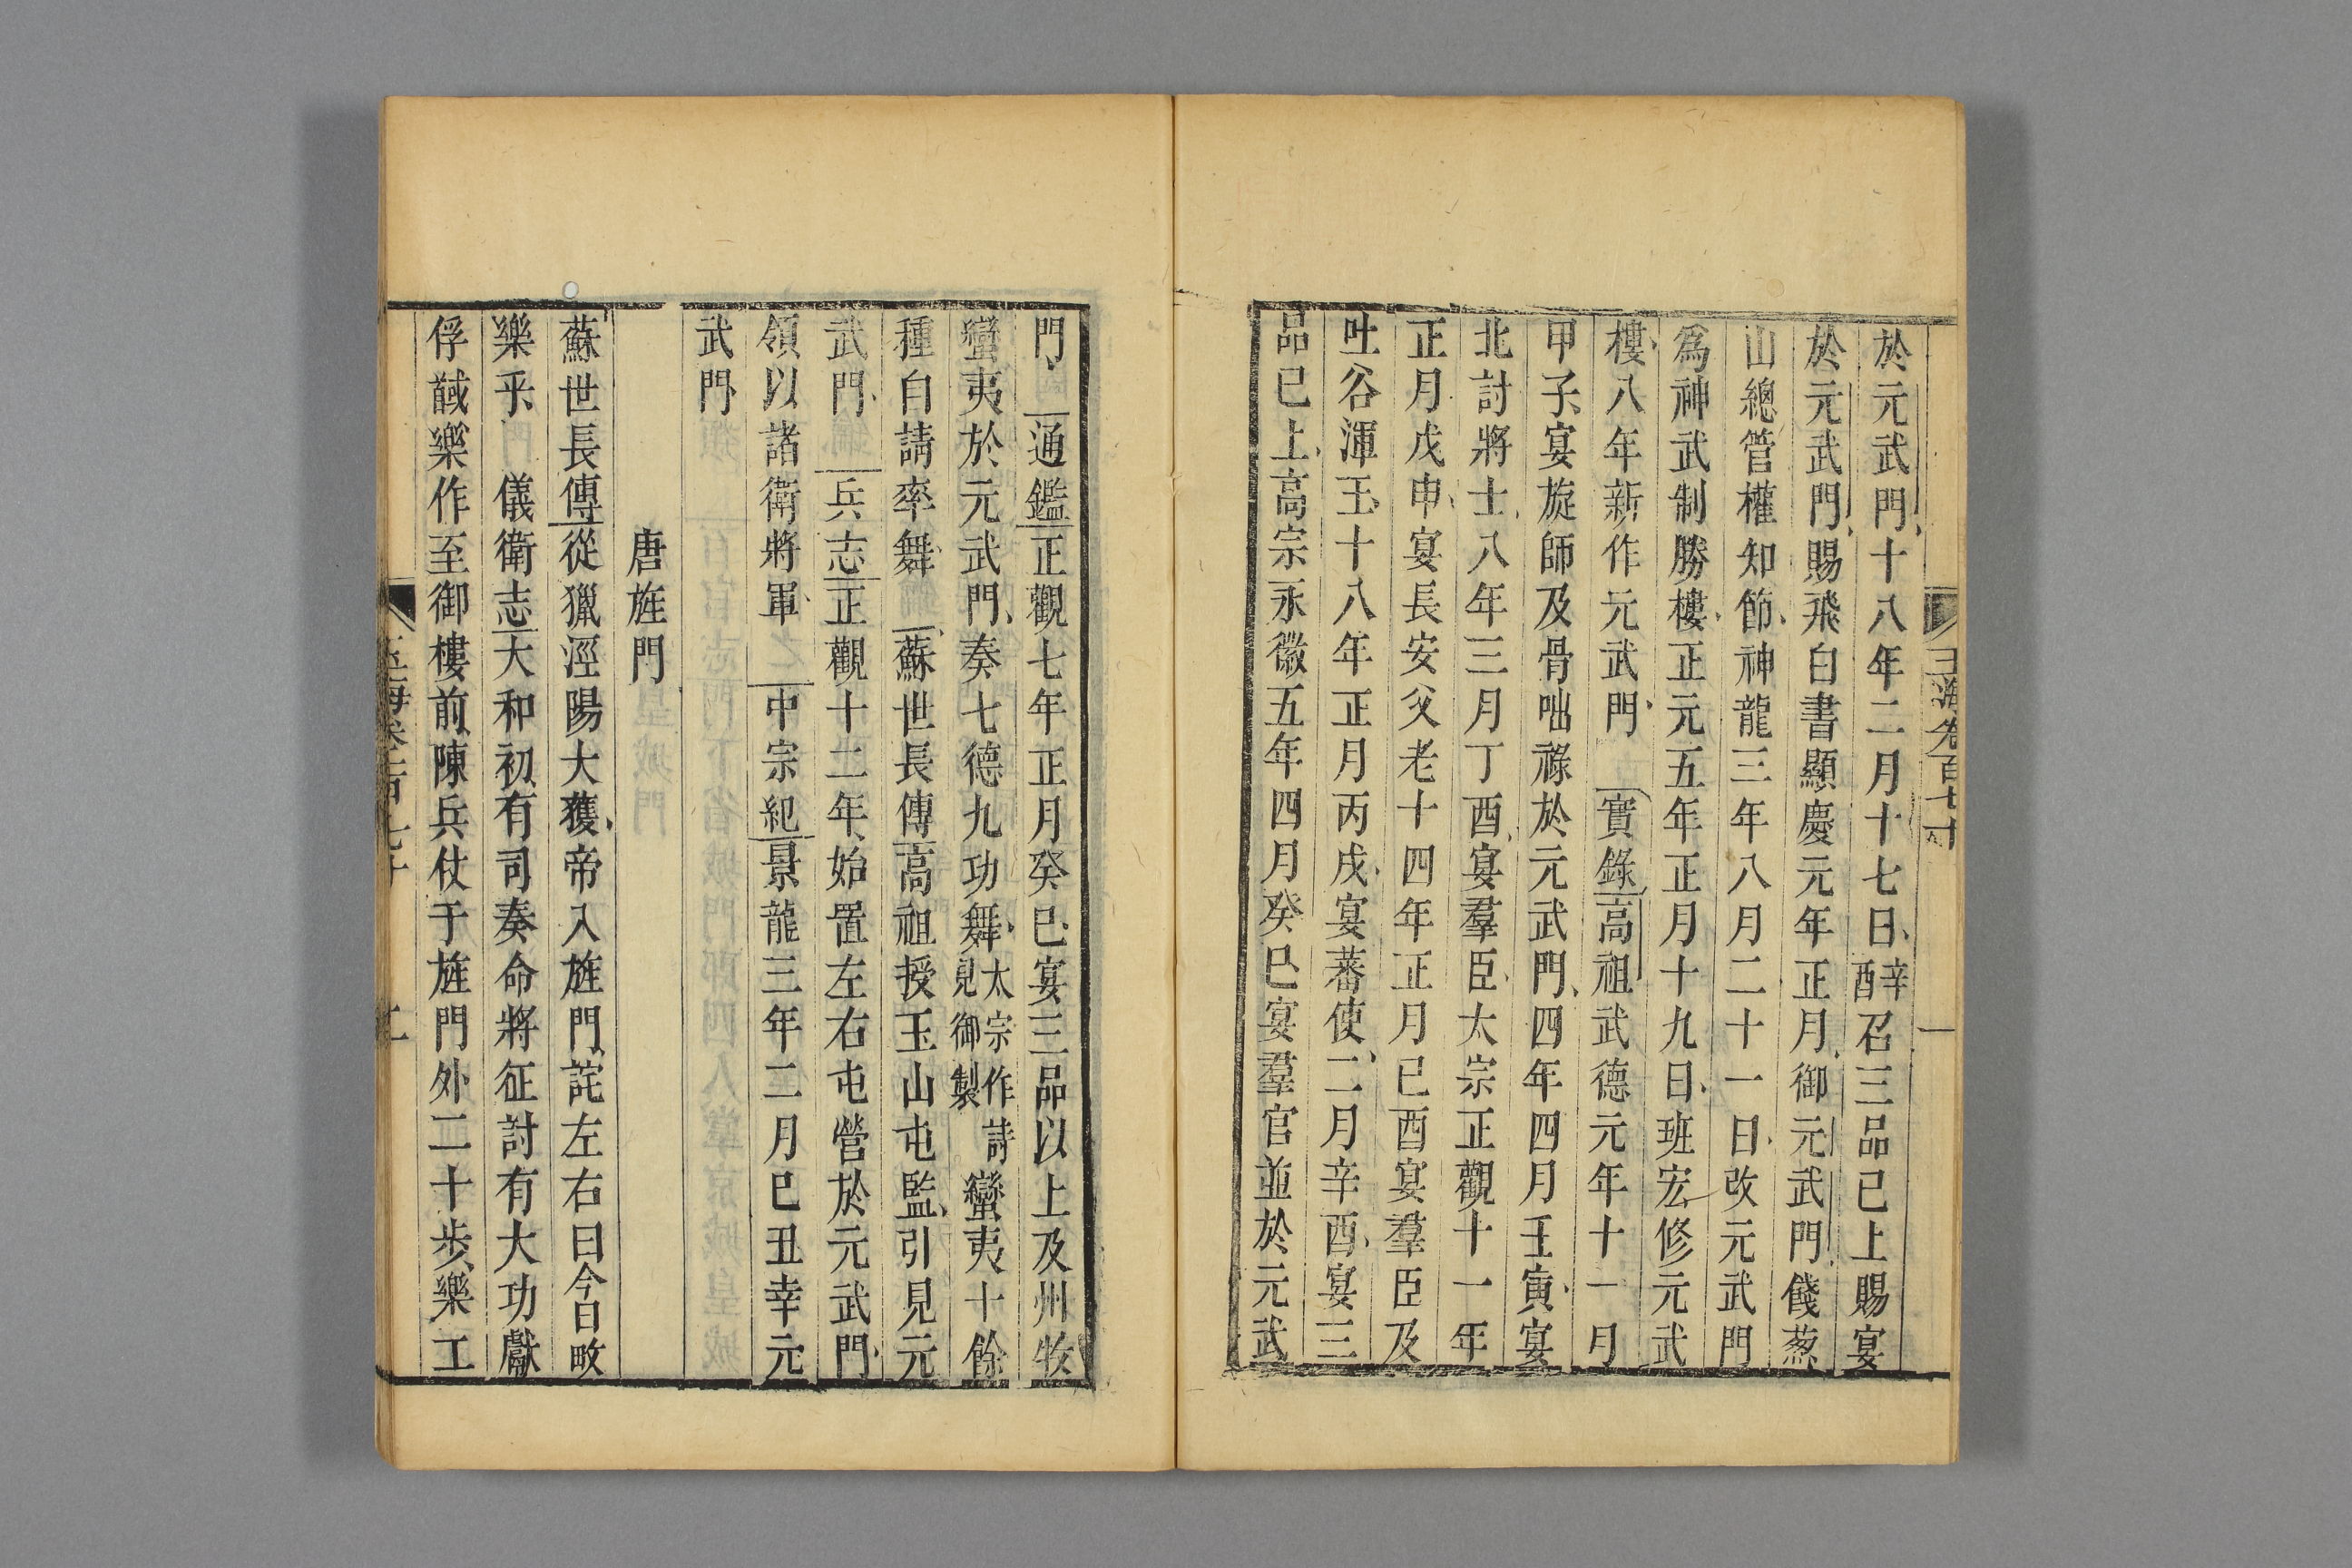 玉海卷百七十
於元武門十八年二月十七日辛酉召三品已上賜宴
於元武門賜飛白書顯慶元年正月御元武門餞葱
山總管權知節神龍三年八月二十一日改元武門
爲神武制勝樓正元五年正月十九日班宏修元武
樓八年新作元武門 實錄高祖武德元年十一月
甲子宴旋師及骨咄祿於元武門四年四月壬寅宴
北討將士八年三月丁酉宴羣臣太宗正觀十一年
正月戊申宴長安父老十四年正月己酉宴羣臣及
吐谷渾王十八年正月丙戌宴蕃使二月辛酉宴三
品已上高宗永徽五年四月癸巳宴羣官並於元武
門 通鑑正觀七年正月癸巳宴三品以上及州牧
蠻夷於元武門奏七德九功舞太宗作詩見御製蠻夷十餘
種自請率舞 蘇世長傳高祖授玉山屯監引見元
武門 兵志正觀十二年始置左右屯營於元武門
領以諸衛將軍 中宗紀景龍三年二月已丑幸元
武門
唐旌門
蘇世長傳從獵涇陽大獲帝入旌門詫左右曰今日畋
樂乎 儀衛志大和初有司奏命將征討有大功獻
俘馘樂作至御樓前陳兵仗于旌門外二十步樂工